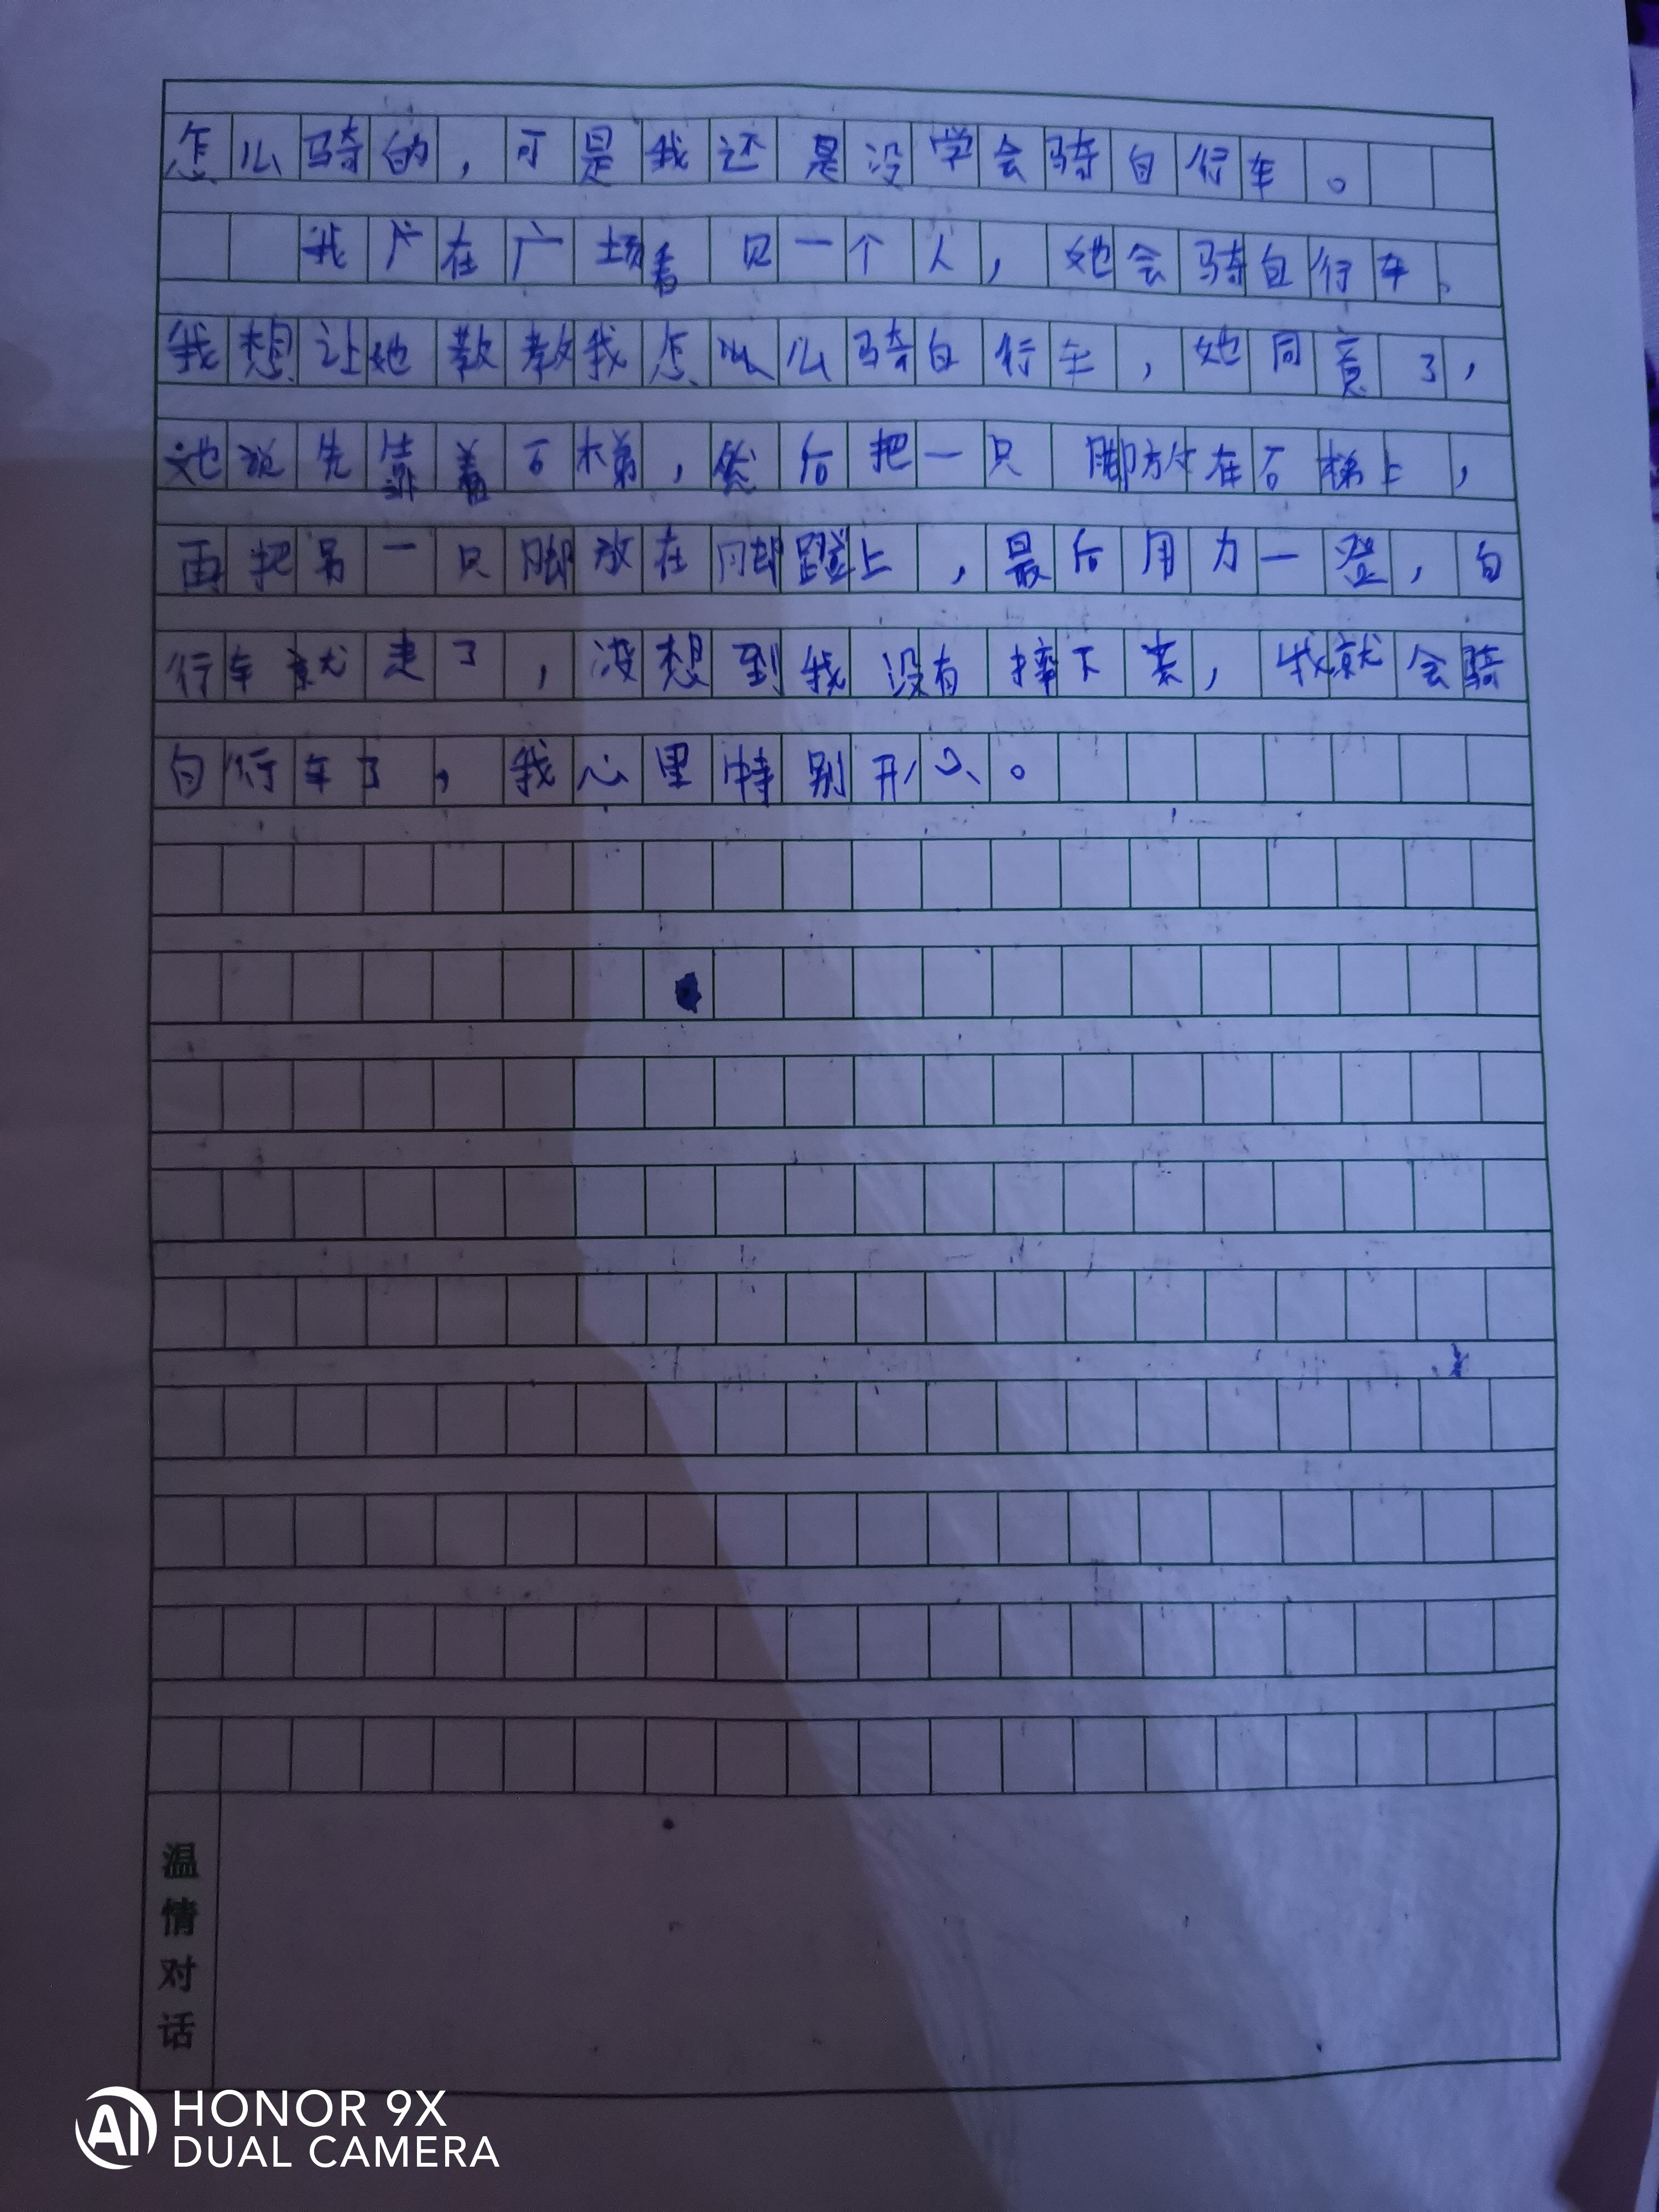 怎么骑的，可是我还是没学会骑自行车。
我广在广场看见一个人，她会骑自行车。
我想让她教教我怎以么骑自行车，她同意了，
她说先靠着石梯，然后把一只脚放在石梯上，
再把另一只脚放在脚蹬上，最后用力一登，自
行车就走了，没想到我没有摔下来，我就会骑
自行车了，我心里特别开心。
温情对话
HONOR 9X
DUAL CAMERA
AI